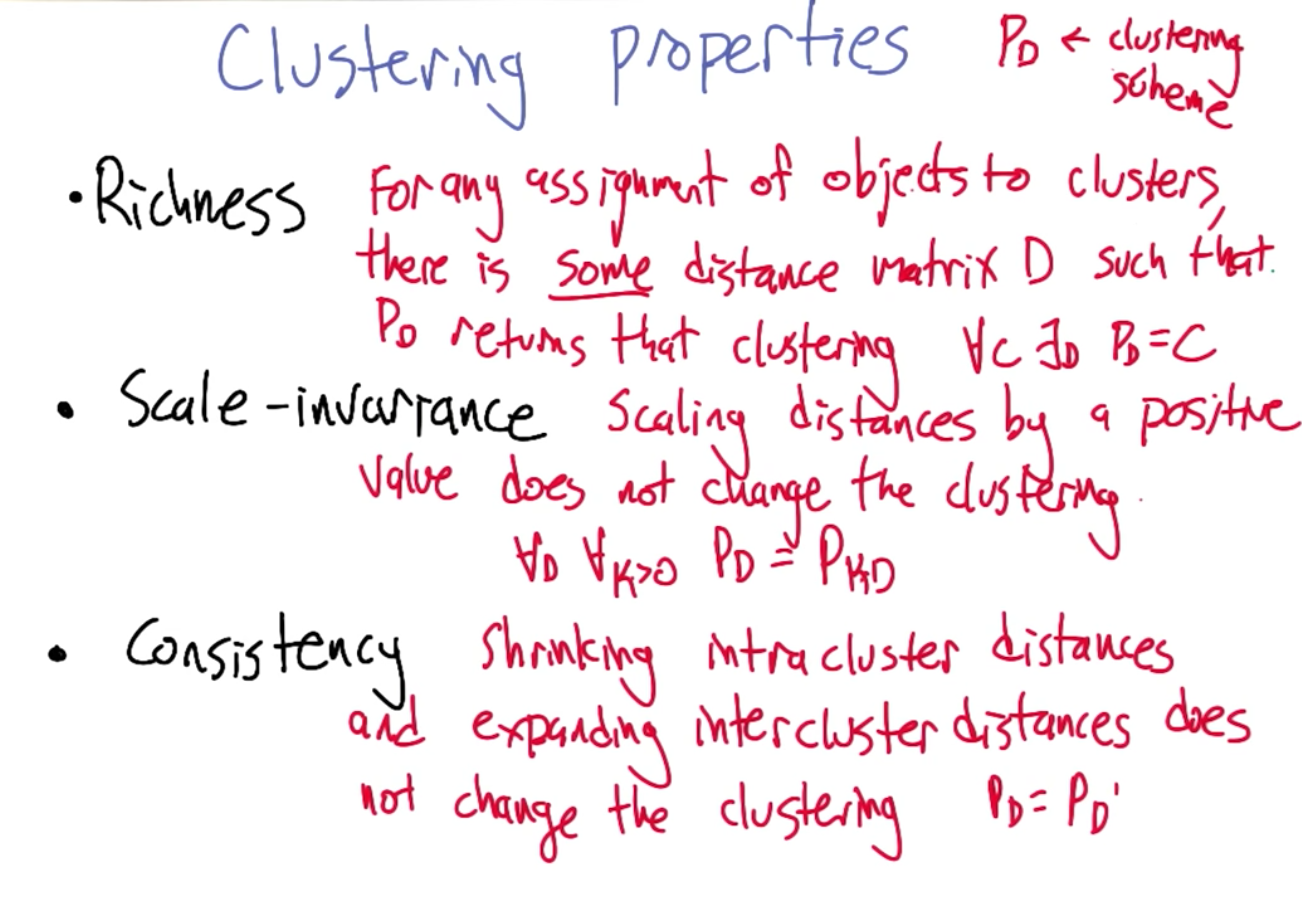 Clustering properties P_D ← clustering
scheme
• Richness For any assignment of objects to clusters,
there is some distance matrix D such that
P_D returns that clustering ∀C ∃D P_D = C
• Scale-invariance Scaling distances by a positive
value does not change the clustering.
∀D ∀K>0 P_D = P_KD
• Consistency Shrinking intracluster distances
and expanding intercluster distances does
not change the clustering P_D = P_D'